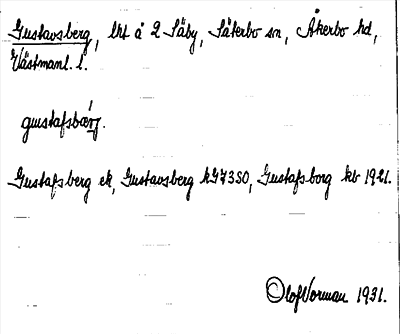 Gustavsberg, lht å 2 Säby, Säterbo sn, Åkerbo hd,
Västmanl. l.
gustafsbærj.
Gustafsberg ek, Gustavsberg hG7350, Gustafsborg kb 1921.
Olof Vorman 1931.